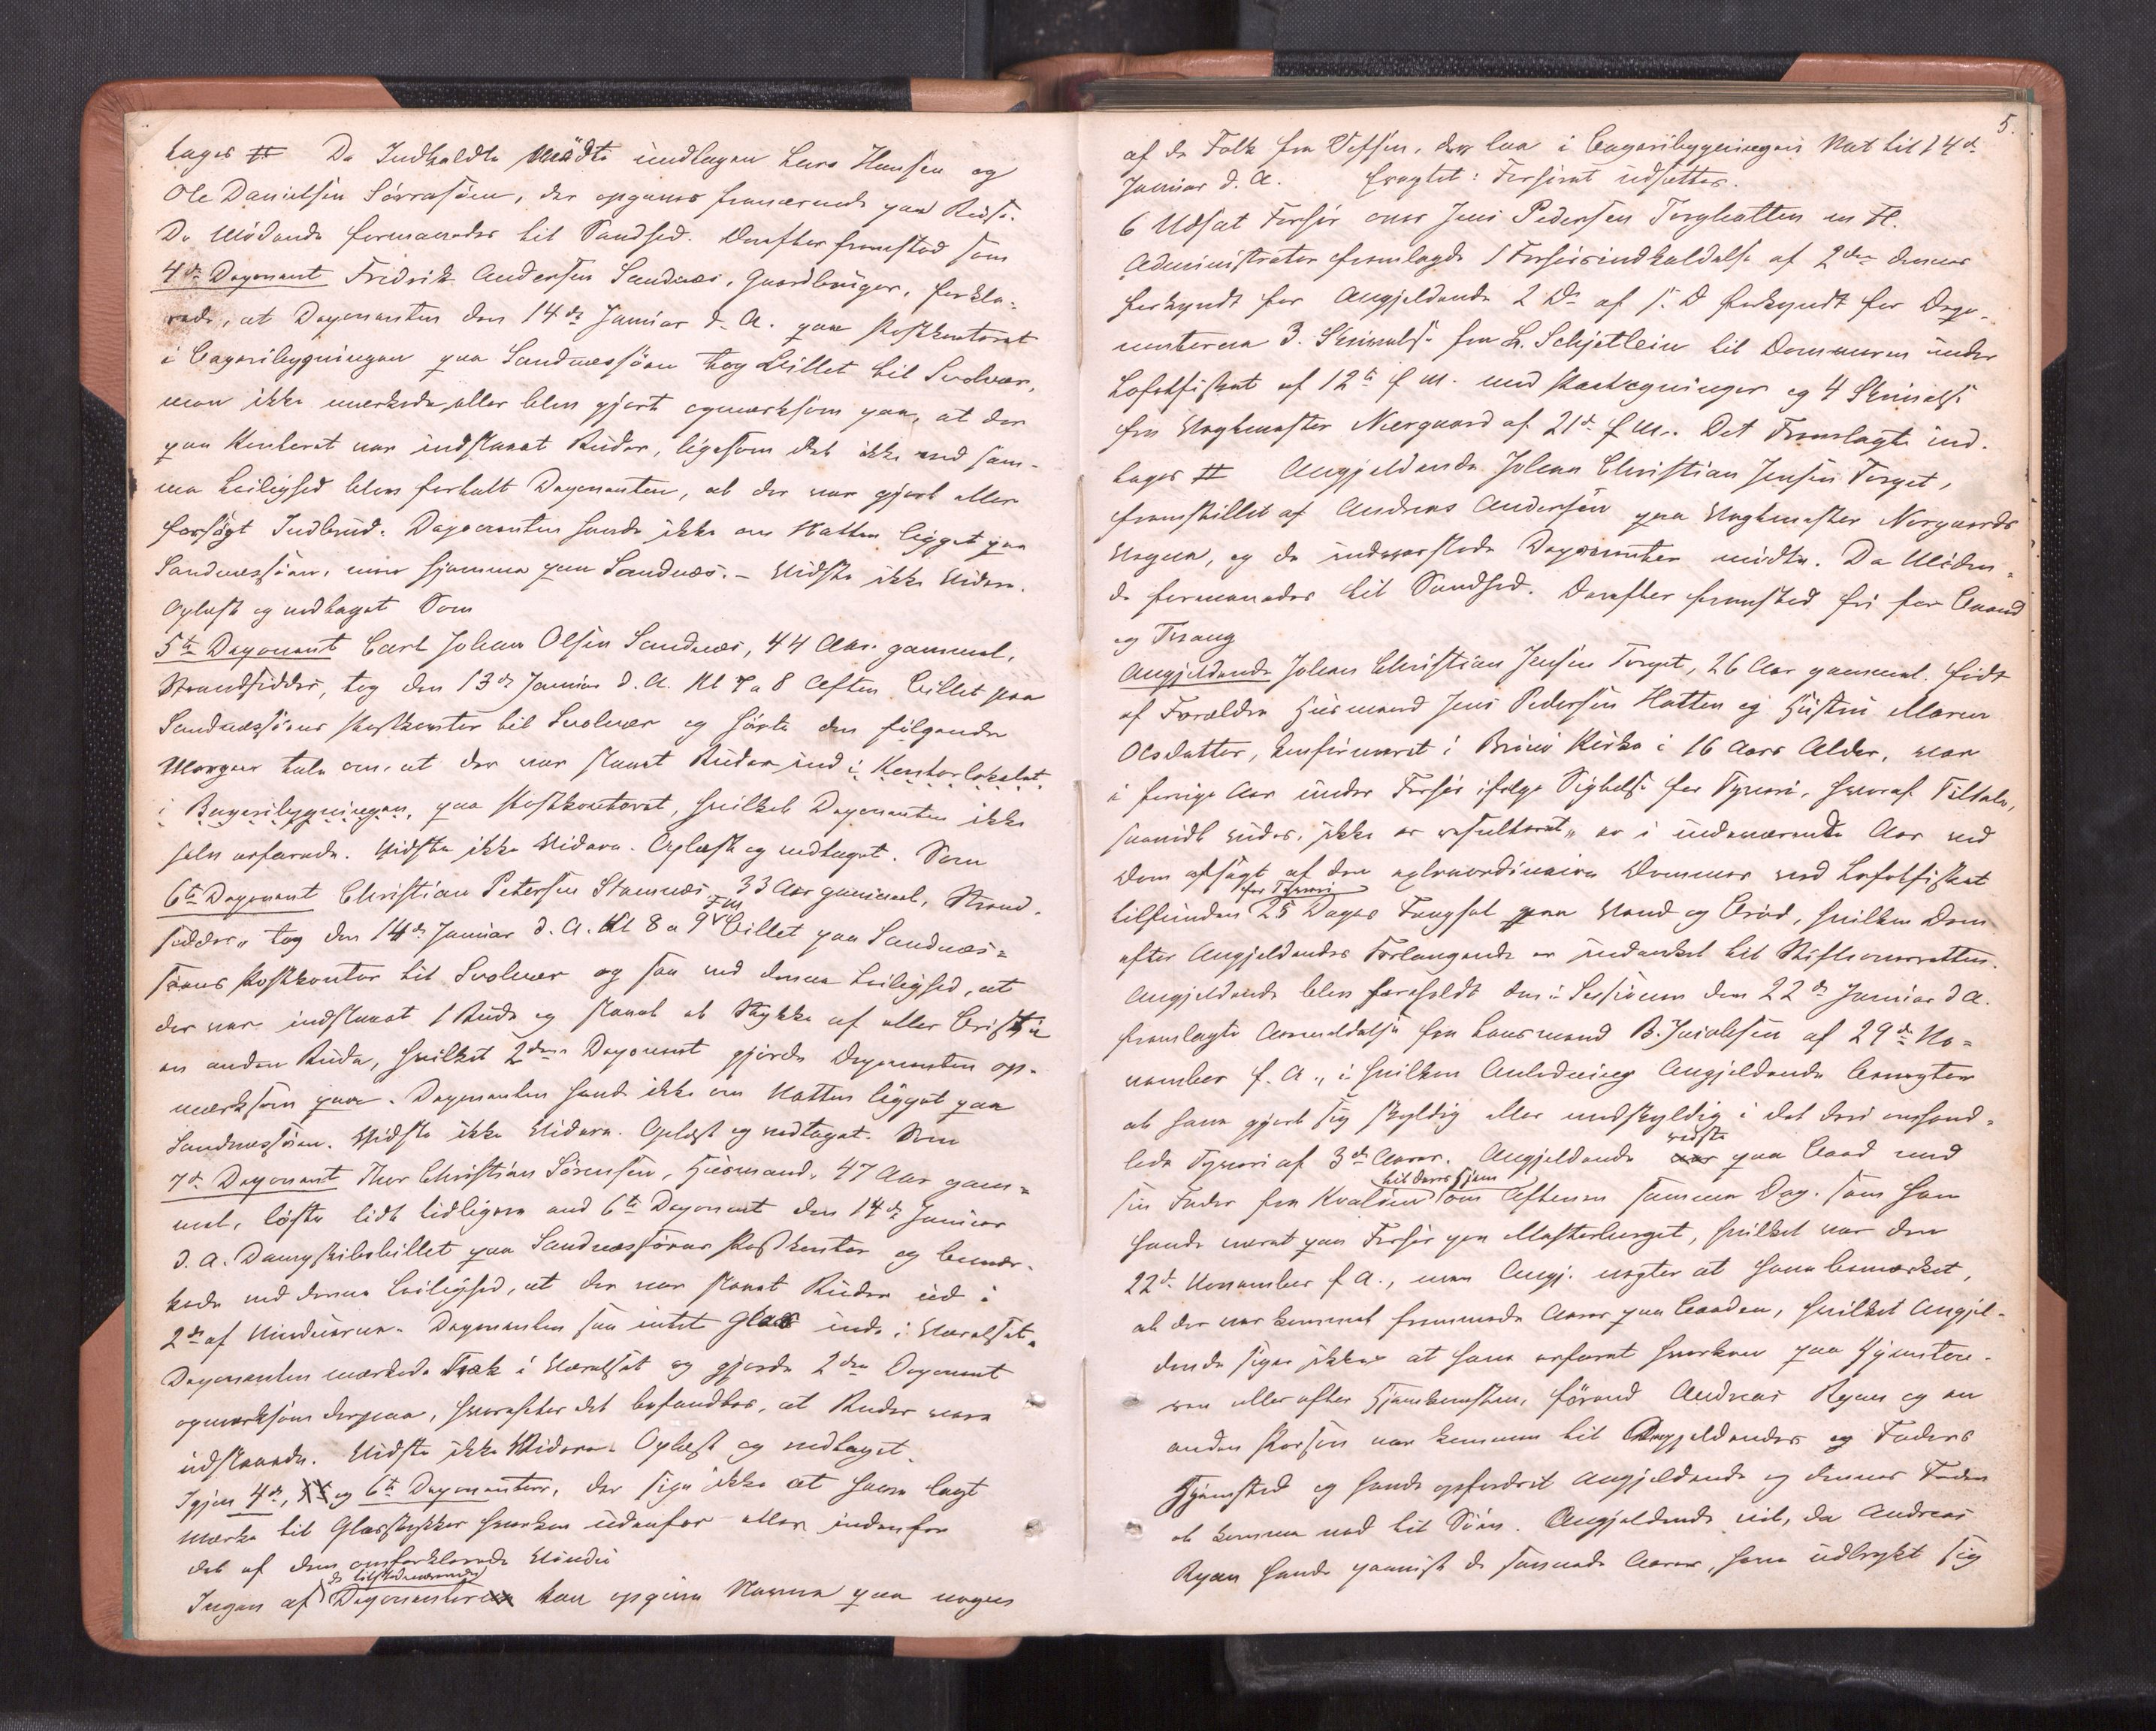 tages # De Indkaldte Mødte undtagen Lars Hansen og
Ole Danielsen Sørrasøen, der opgaves fraværende paa Reise.
De Mødende formanedes til Sandhed. Derefter fremstod som
4de Deponent Fredrik Andersen Sandnes, Gaardbruger, forkla-
rede, at Deponenten den 14de Januar d. A. paa Postkontoret
i Bageribygningen paa Sandnessjøen tog Billet til Svolvær,
men ikke mærkede eller blev gjort opmærksom paa, at der
paa Kontoret var indslaaet Ruder, ligesom det ikke ved sam-
me Leilighed blev fortalt Deponenten, at der var gjort eller
forsøgt Indbrud. Deponenten havde ikke om Natten ligget paa
Sandnessjøen, men hjemme paa Sandnes. – Vidste ikke Videre.
Oplæst og vedtaget Som
5te Deponent Carl Johan Olsen Sandnes, 44 Aar gammel,
Strandsidder, tog den 13de Januar d. A. Kl 7 a 8 Aften Billet paa
Sandnessjøens Postkontor til Svolvær og hørte den følgende
Morgen tale om, at der var slaaet Ruder ind i Kontorlokalet
i Bageribygningen, paa Postkontoret, hvilket Deponenten ikke
selv erfarede. Vidste ikke Videre. Oplæst og vedtaget. Som
6te Deponent Christian Petersen Stamnes, 33 Aar gammel, Strand-
sidder, tog den 14de Januar d. A. Kl 8 a 9 F M Billet paa Sandnes-
sjøens Postkontor til Svolvær og saa ved denne Leilighed, at
der var indslaaet 1 Rude og slaaet et Stykke af eller Brist i
en anden Rude, hvilket 2den Deponent gjorde Deponenten op-
mærksom paa. Deponenten havde ikke om Natten ligget paa
Sandnessjøen. Vidste ikke Videre. Oplæst og vedtaget. Som
7de Deponent Thor Christian Sørensen, Husmand, 47 Aar gam-
mel, løste lidt tidligere end 6te Deponent den 14de Januar
d. A. Dampskibsbillet paa Sandnessjøens Postkontor og bemær-
kede ved denne Leilighed, at der var slaaet Ruder ud i
2de af Vinduerne. Deponenten saa intet Glas inde i Værelset.
Deponenten mærkede Træk i Værelset og gjorde 2den Deponent
opmærksom derpaa, hvorefter det befandtes, at Ruder vare
udslaaede. Vidste ikke Videre. Oplæst og vedtaget.
Igjen 4de, og 6te Deponenter, der siger ikke at have lagt
Mærke til Glasstykker hverken udenfor eller indenfor
det af dem omforklarede Vindu
Ingen af de tilstedeværende Deponenter kan opgive Navne paa nogen
5.
af de Folk fra Vefsen, der laa i Bageribygningen Nat til 14de
Januar d. A. Eragtet: Forhøret udsættes.
6 Udsat Forhør over Jens Pedersen Torghatten m Fl.
Administrator fremlagde 1 Forhørsindkaldelse af 2den dennes
forkyndt for Angjeldende 2 Do af s. D forkyndt for Depo-
nenterne 3. Skrivelse fra L. Schjetlein til Dommeren under
Lofotfisket af 12te f M. med Paategninger og 4 Skrivelse
fra Vagtmester Nergaard af 21de f M.. Det Fremlagte ind-
tages # Angjeldende Johan Christian Jensen Torget,
fremstillet af Andreas Andersen paa Vagtmester Nergaards
Vegne, og de indvarslede Deponenter mødte. De Møden-
de formanedes til Sandhed. Derefter fremstod fri for Baand
og Tvang
Angjeldende Johan Christian Jensen Torget, 26 Aar gammel. født
af Forældre Husmand Jens Pedersen Hatten og Hustru Maren
Olsdatter, konfirmeret i Brønø Kirke i 16 Aars Alder, var
i forrige Aar under Forhør ifølge Sigtelse for Tyveri, hvoraf Tiltale,
saavidt vides, ikke er resulteret, er i indeværende Aar ved
Dom afsagt af den extraordinaire Dommer ved Lofotfisket
tilfunden for Tyveri 25 Dages Fængsel paa Vand og Brød, hvilken Dom
efter Angjeldendes Forlangende er indanket til Stiftsoverretten.
Angjeldende blev foreholdt den i Sessionen den 22de Januar d A.
fremlagte Anmeldelse fra Lensmand B. Jacobsen af 29de No-
vember f. A., i hvilken Anledning Angjeldende benegter
at have gjort sig skyldig eller medskyldig i det deri omhand-
lede Tyveri af 3de Aarer. Angjeldende reiste paa Baad med
sin Fader fra Kvaløen til deres Hjem om Aftenen samme Dag, som han
havde været paa Forhør paa Mosterberget, hvilket var den
22de November f A., men Angj. negter at have bemærket,
at der var kommet fremmede Aarer paa Baaden, hvilket Angjel-
dende siger ikke at have erfaret hverken paa Hjemturen
eller efter Hjemkomsten, førend Andreas Ryan og en
anden Person var kommen til Angjeldendes og Faders
Hjemsted og havde opfordret Angjeldende og dennes Fader
at komme ned til Søen. Angjeldende vil, da Andreas
Ryan havde paavist de savnede Aarer, have udtrykt sig